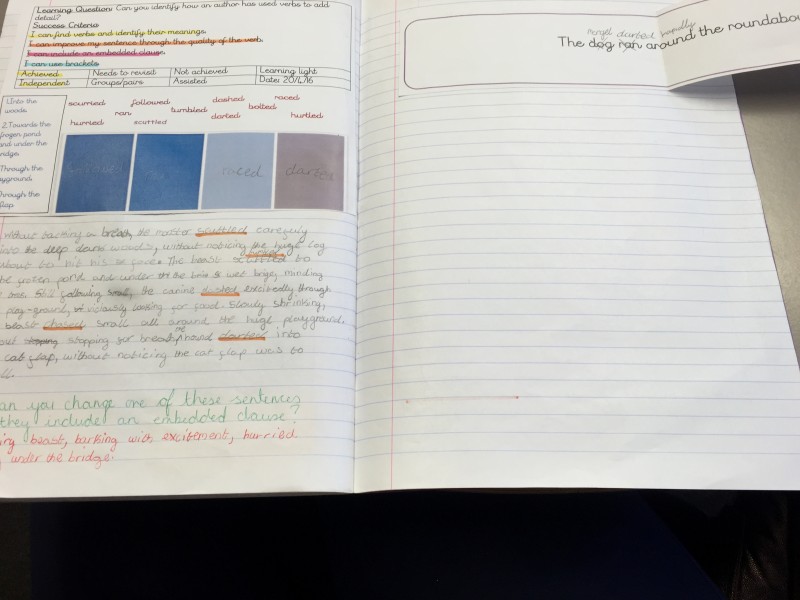 Learning Question: Can you identify how an author has used verbs to add
detail?
Success Criteria
I can find verbs and identify their meanings.
I can improve my sentence through the quality of the verb.
I can include an embedded clause.
I can use brackets
Achieved Needs to revisit Not achieved Learning light
Independent Groups/pairs Assisted Date: 20/4/16
1.Into the
woods
2.Towards the
frozen pond
and under the
bridge
Through the
playground
Through the
flap
scurried followed dashed raced
ran tumbled bolted
hurried scuttled darted hurtled
raced darted
Without barking or breath, the monster scuttled carefully
into the deep dark woods, without noticing the huge log
about to hit his face. The beast scuttled to
the frozen pond and under the wet bridge, minding
Still following the canine dashed excitedly through
play-ground, viciously looking for food. Slowly shrinking,
beast chased small all around the huge playground.
stopping for breath hound darted into
cat flap, without noticing the cat flap was to
can you change one of these sentences
they include an embedded clause?
beast, barking with excitement, hurried
under the bridge.
darted rapidly
The dog ran around the roundabou